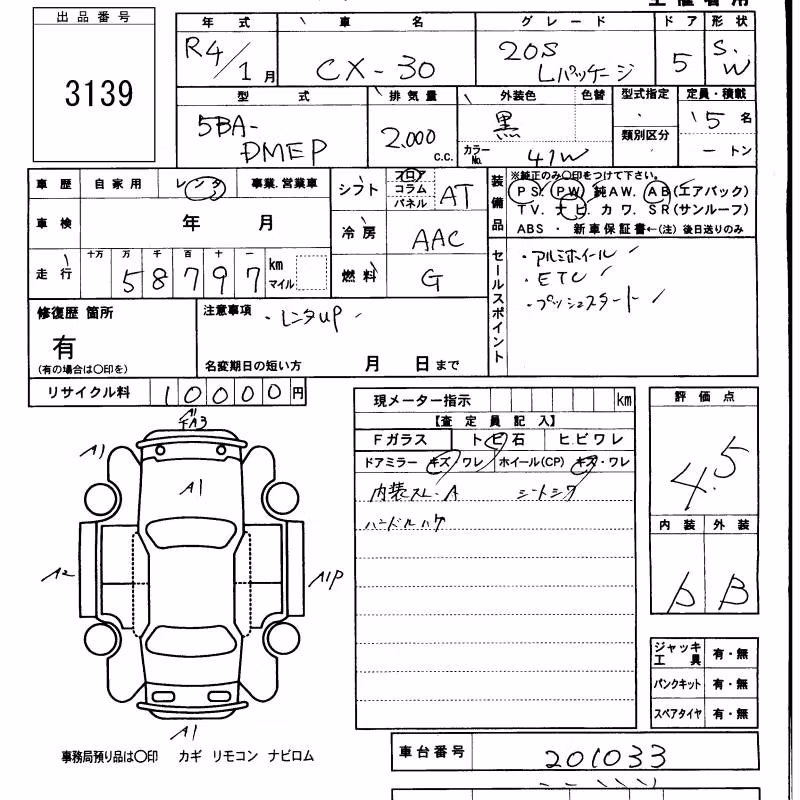 出品番号
3139
年式 車名 グレード ドア 形状
R4/1月 CX-30 20S Lパッケージ 5 S.W
型式 排気量 外装色 色替 型式指定 定員・積載
5BA-DMEP 2,000 c.c. 黒 カラーNo. 41W 類別区分 5名
ートン
車歴 自家用 レンタ 事業.営業車
車検 年 月
走行 十万 万 千 百 十 一
58797 km マイル
シフト フロア コラム パネル AT
冷房 AAC
燃料 G
装備品
※純正のみ〇印をつけて下さい。
PS. PW 純AW. AB(エアバック)
TV. ナビ. カワ. SR(サンルーフ)
ABS ・ 新車保証書←(注) 後日送りのみ
セールスポイント
・アルミホイール
・ETC
・プッシュスタート
修復歴 箇所
有
(有の場合は〇印を)
注意事項 ・レンタup
名変期日の短い方 月 日まで
リサイクル料 10000円
現メーター指示 km
【査定員記入】
Fガラス トビ石 ヒビワレ
ドアミラー キズ・ワレ ホイール(CP) キズ・ワレ
内装スレ・A シートシワ
ハンドルハゲ
評価点
4.5
内装 外装
b B
A1
A1
A1
A2
A1P
A1
ジャッキ工具 有・無
パンクキット 有・無
スペアタイヤ 有・無
事務局預り品は〇印 カギ リモコン ナビロム
車台番号 201033